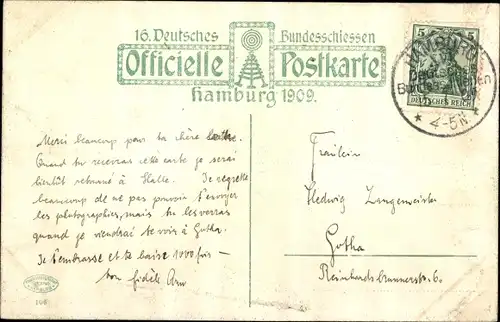 16. Deutsches Bundesschiessen
Officielle Postkarte
Hamburg 1909.
5 5
DEUTSCHES REICH
HAMBURG
XVI
Deutsches
Bundesschiessen
* 4-5N *
Merci beaucoup pour ta chère lettre.
Quand tu recevras cette carte je serai
bientôt retourné à Halle. Je regrette
beaucoup de ne pas pouvoir t'envoyer
les photographies, mais tu les verras
quand je viendrai te voir à Gotha.
Je t'embrasse et te baise 1000 fois —
ton fidèle
Fräulein
Hedwig Langemeister
Gotha
Reinhardsbrunnerstr. 6.